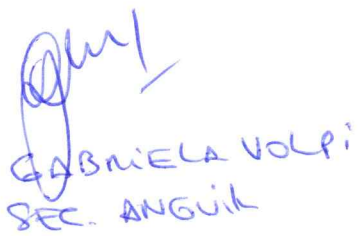 GABRIELA VOLPI
SEC. ANGUIL